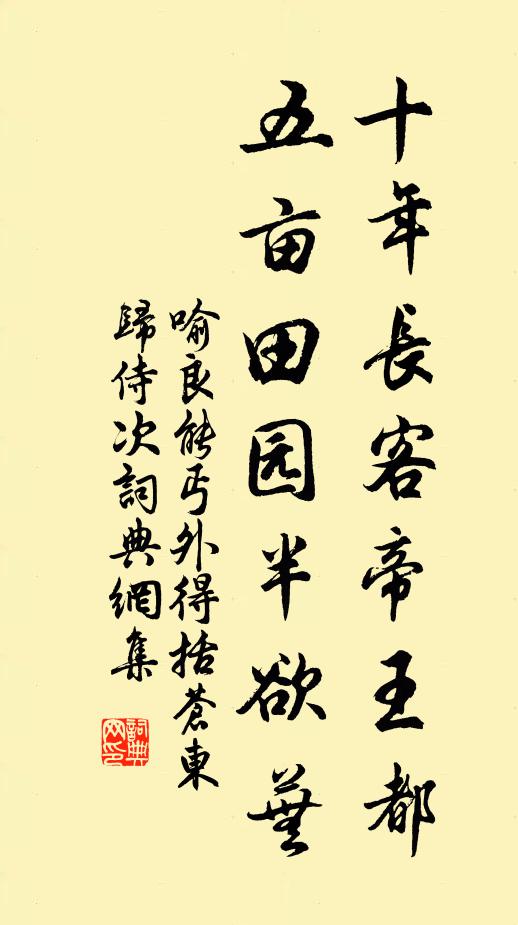 十年長客帝王都
五亩田园半欲蕪
喻良能丐外得括蒼東
歸侍次詞典網集
詞典網印